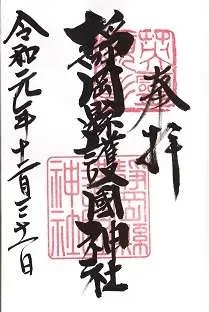 奉拝
靜岡縣護國神社
令和元年十二月三十一日
靜岡縣
神社